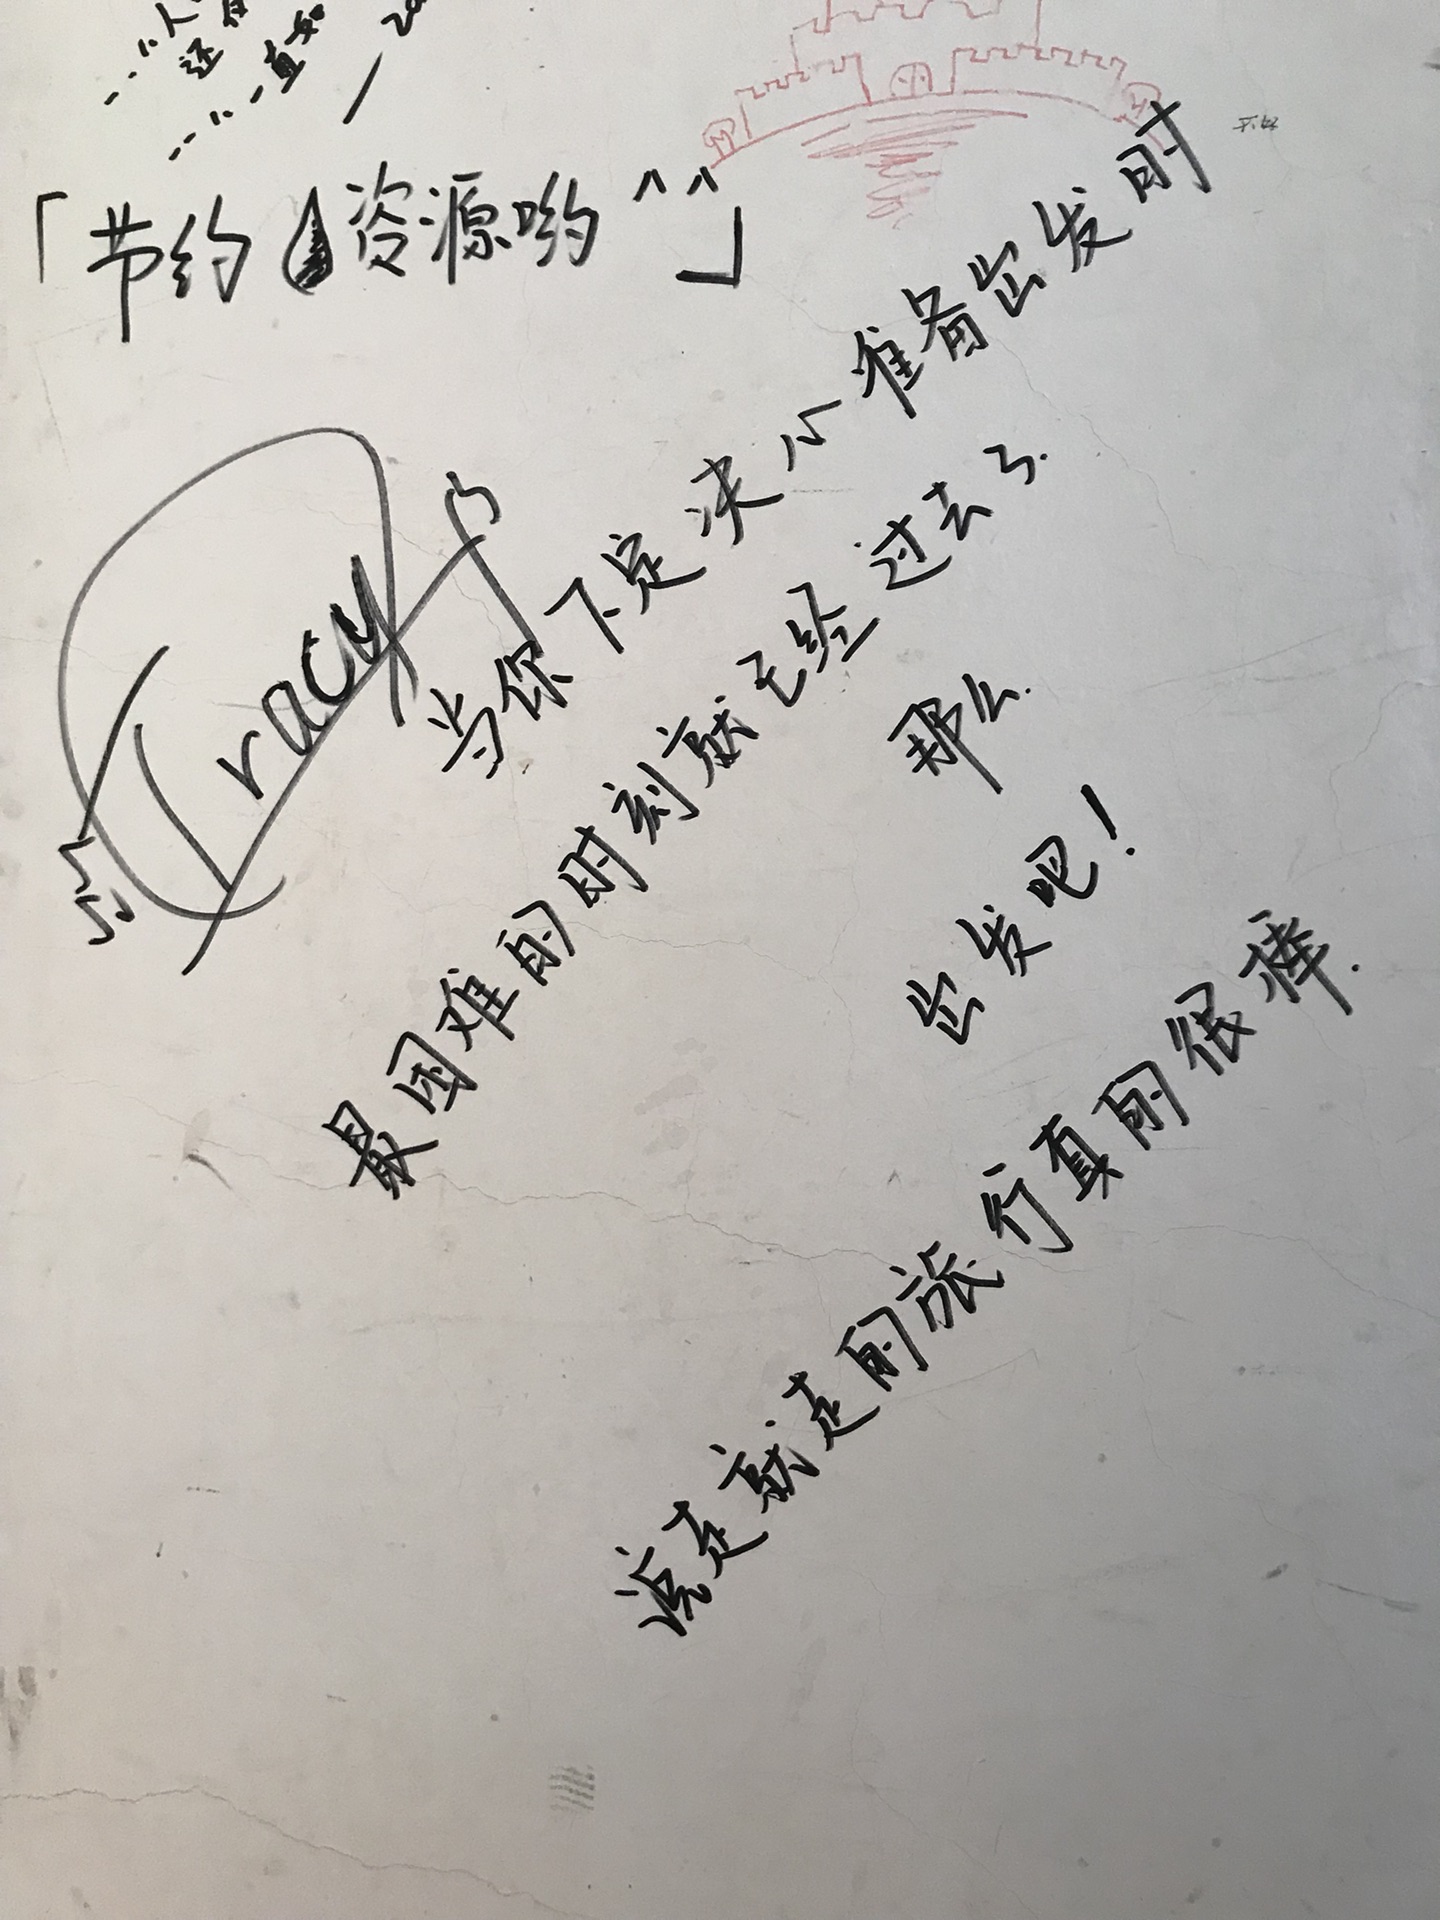 「节约资源哟^^」
Tracy
当你下定决心准备出发时
最困难的时刻就已经过去了.
那么.
出发吧！
说走就走的旅行真的很棒.